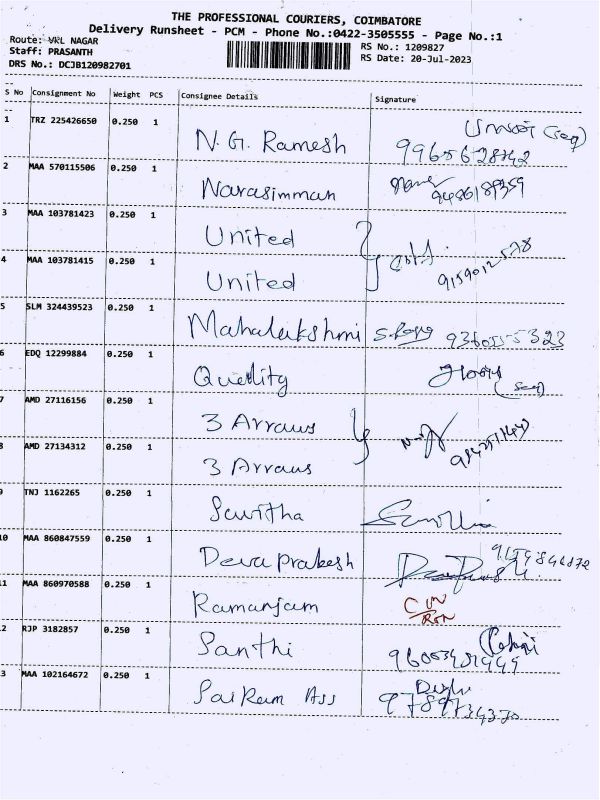 THE PROFESSIONAL COURIERS, COIMBATORE
Delivery Runsheet - PCM - Phone No.:0422-3505555 - Page No.:1
Route: VRL NAGAR
Staff: PRASANTH
DRS No.: DCJB120982701
RS No.: 1209827
RS Date: 20-Jul-2023
S No Consignment No Weight PCS Consignee Details Signature
1 TRZ 225426650 0.250 1 N.G. Ramesh 9965628742
2 MAA 570115506 0.250 1 Narasimman 9486189359
3 MAA 103781423 0.250 1 United
4 MAA 103781415 0.250 1 United 9159012578
5 SLM 324439523 0.250 1 Mahalakshmi
6 EDQ 12299884 0.250 1 Quality
7 AMD 27116156 0.250 1 3 Arraws
8 AMD 27134312 0.250 1 3 Arraws
9 TNJ 1162265 0.250 1
10 MAA 860847559 0.250 1 Deva Prakesh
11 MAA 860970588 0.250 1 Ramanjam
2 RJP 3182857 0.250 1 Santhi
3 MAA 102164672 0.250 1 Sai Ram Ass